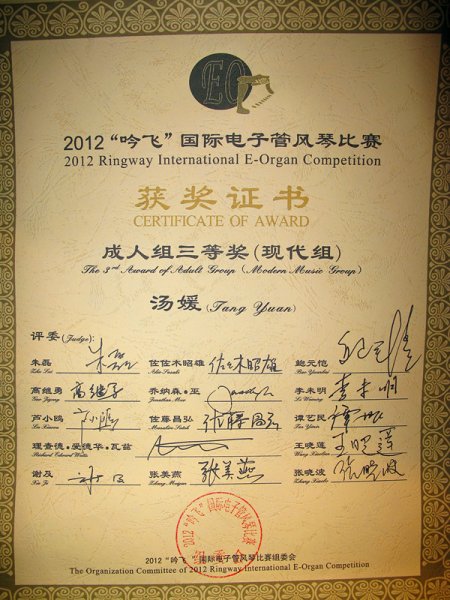 EO
2012“吟飞”国际电子管风琴比赛
2012 Ringway International E-Organ Competition
获奖证书
CERTIFICATE OF AWARD
成人组三等奖(现代组)
The 3rd Award of Adult Group (Modern Music Group)
汤媛(Tang Yuan)
评委(Judge):
朱磊 佐佐木昭雄 鲍元恺
Zhu Lei
高继勇 乔纳森·巫 李未明
芦小鸥 佐藤昌弘 谭艺民
理查德·爱德华·瓦兹 王晓莲
谢及 张美燕 张晓波
2012“吟飞”国际电子管风琴比赛组委会
The Organization Committee of 2012 Ringway International E-Organ Competition